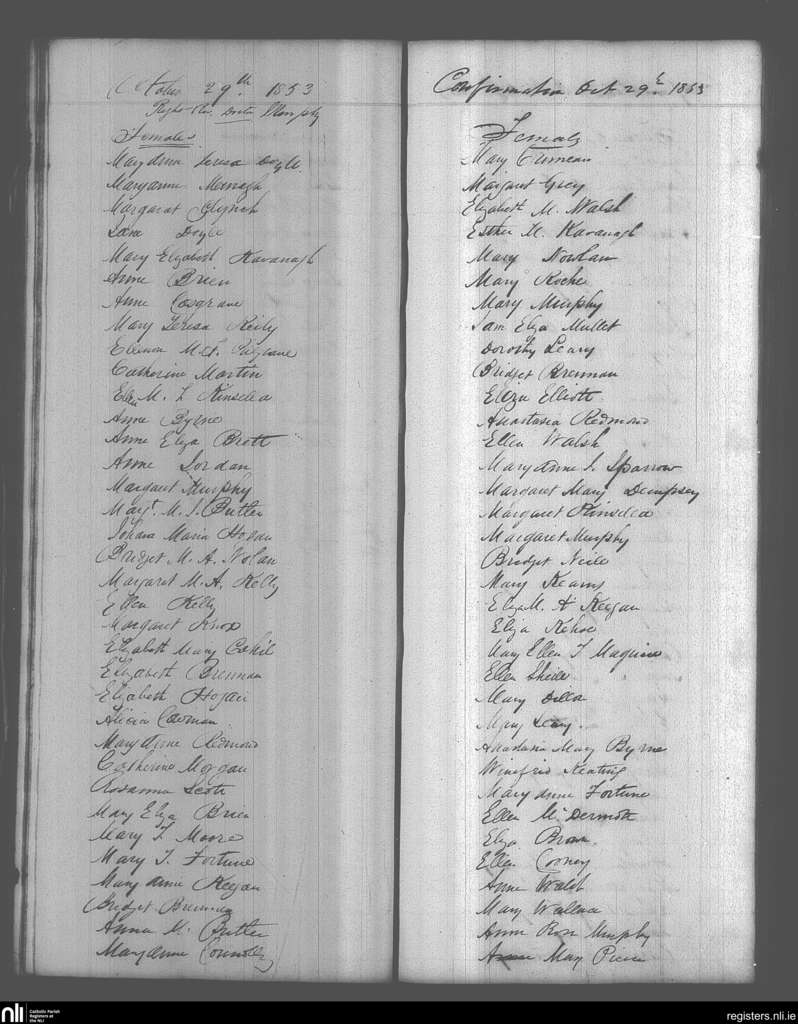 October 29th 1853
Right Rev. Doctor Murphy
Females
Mary Anne Teresa Doyle
Maryanne Murtagh
Margaret Glynch
Jane Doyle
Mary Elizabeth Kavanagh
Anne Brien
Anne Cosgrave
Mary Teresa Reily
Eleanor M.
Catherine Martin
Ellen M. T. Kinselea
Anne Byrne
Anne Eliza Brott
Anne Jordan
Margaret Murphy
Margt. M. J. Butler
Johana Maria Hogan
Bridget M. A. Nolan
Margaret M. A. Kelly
Ellen Kelly
Margaret Knox
Elizabeth Mary Cahil
Elizabeth Brennan
Elizabeth Hogan
Alicia Cavman
Mary Anne Redmond
Catherine Morgan
Rosanna Scott
Mary Eliza Brien
Mary T. Moore
Mary T. Fortune
Mary Anne Keegan
Bridget Brennan
Anna M. Butler
Mary Anne Connolly
Confirmation Oct 29th 1853
Females
Mary Curneau
Margaret Grey
Elizabeth M. Walsh
Esther M. Kavanagh
Mary Nowlan
Mary Roche
Mary Murphy
Jane Eliza Mullet
Dorothy Leary
Bridget Brennan
Eliza Elliott
Anastasia Redmond
Ellen Walsh
Mary Anne J. Sparrow
Margaret Mary Dempsey
Margaret Kinselea
Margaret Murphy
Bridget Neile
Mary Kearns
Eliza M. A. Keegan
Eliza Kehoe
Mary Ellen T Maguire
Ellen Sheile
Mary Dillon
Mary Leary.
Anastasia Mary Byrne
Winifrid Keating
Mary Anne Fortune
Ellen McDermott
Eliza
Ellen Cooney
Anne Walsh
Mary Wallace
Anne Rose Murphy
May Pierce
nli Catholic Parish
Registers at
the NLI
registers.nli.ie